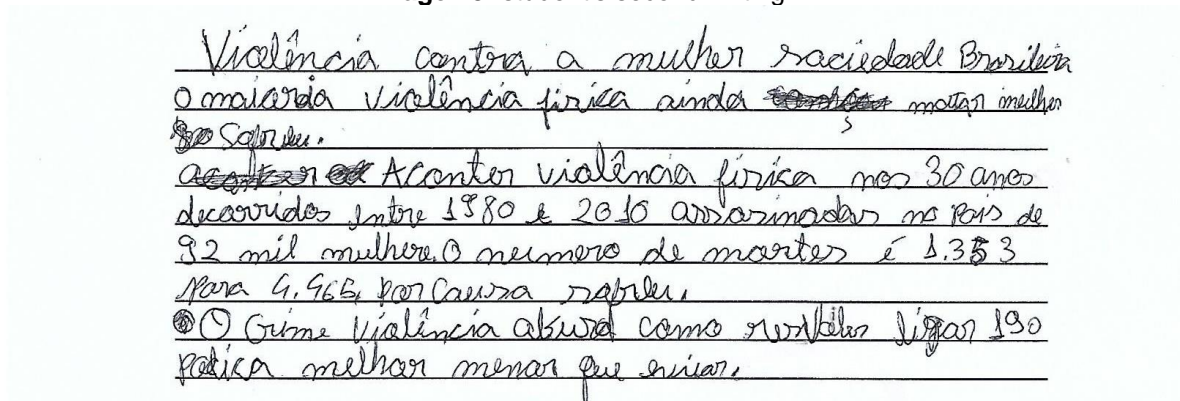 Violência contra a mulher saciedade Brasileira
O maiorda violência física ainda matar mulher
s
Aconter violência física nos 30 anos
decorridos entre 1980 e 2010 assasinadas no Pais de
92 mil mulhere. O neumero de mortes é 1.353
Para 4.465, Por Causa
O Crime Violência aburd como ligar 190
melhor menar que